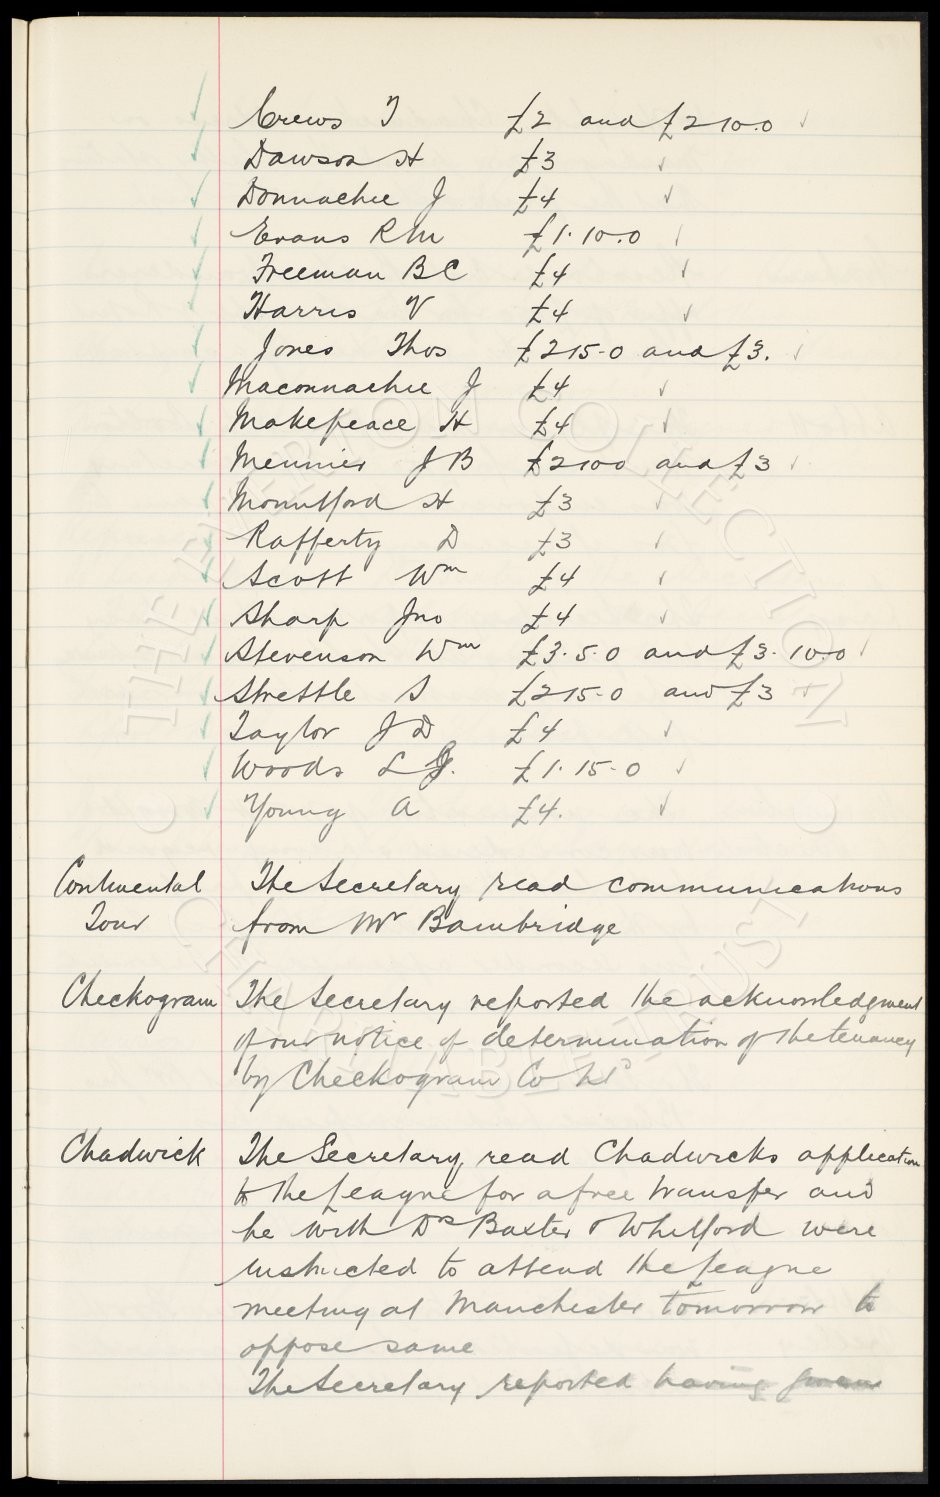 Crews T £2 and £2 10.0
Dawson H £3
Donnachie J £4
Evans R M £1.10.0
Freeman B C £4
Harris V £4
Jones Thos £2 15-0 and £3.
Maconnachie J £4
Makepeace H £4
Meunier J B £2 10 0 and £3
Mountford H £3
Rafferty D £3
Scott Wm £4
Sharp Jno £4
Stevenson Wm £3.5.0 and £3.10.0
Strettle S £2 15-0 and £3
Taylor J D £4
Woods L J. £1.15-0
Young A £4.
Continental Tour The Secretary read communications
from Mr Bambridge
Checkogram The Secretary reported the acknowledgment
of our notice of determination of the tenancy
by Checkogram Co Ld
Chadwick The Secretary read Chadwicks application
to the League for a free transfer and
he with Drs Baxter & Whitford were
instructed to attend the League
meeting at Manchester tomorrow to
oppose same
The Secretary reported having given
THE EVERTON COLLECTION
CHARITABLE TRUST